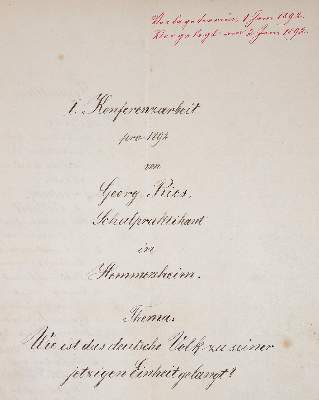 Vorlagetermin: 1 Juni 1892.
Vorgelegt am 2. Juni 1892.
1. Konferenzarbeit
pro 1892
von
Georg Ries,
Schulpraktikant
in
Hemmersheim.
Thema:
Wie ist das deutsche Volk zu seiner
jetzigen Einheit gelangt?